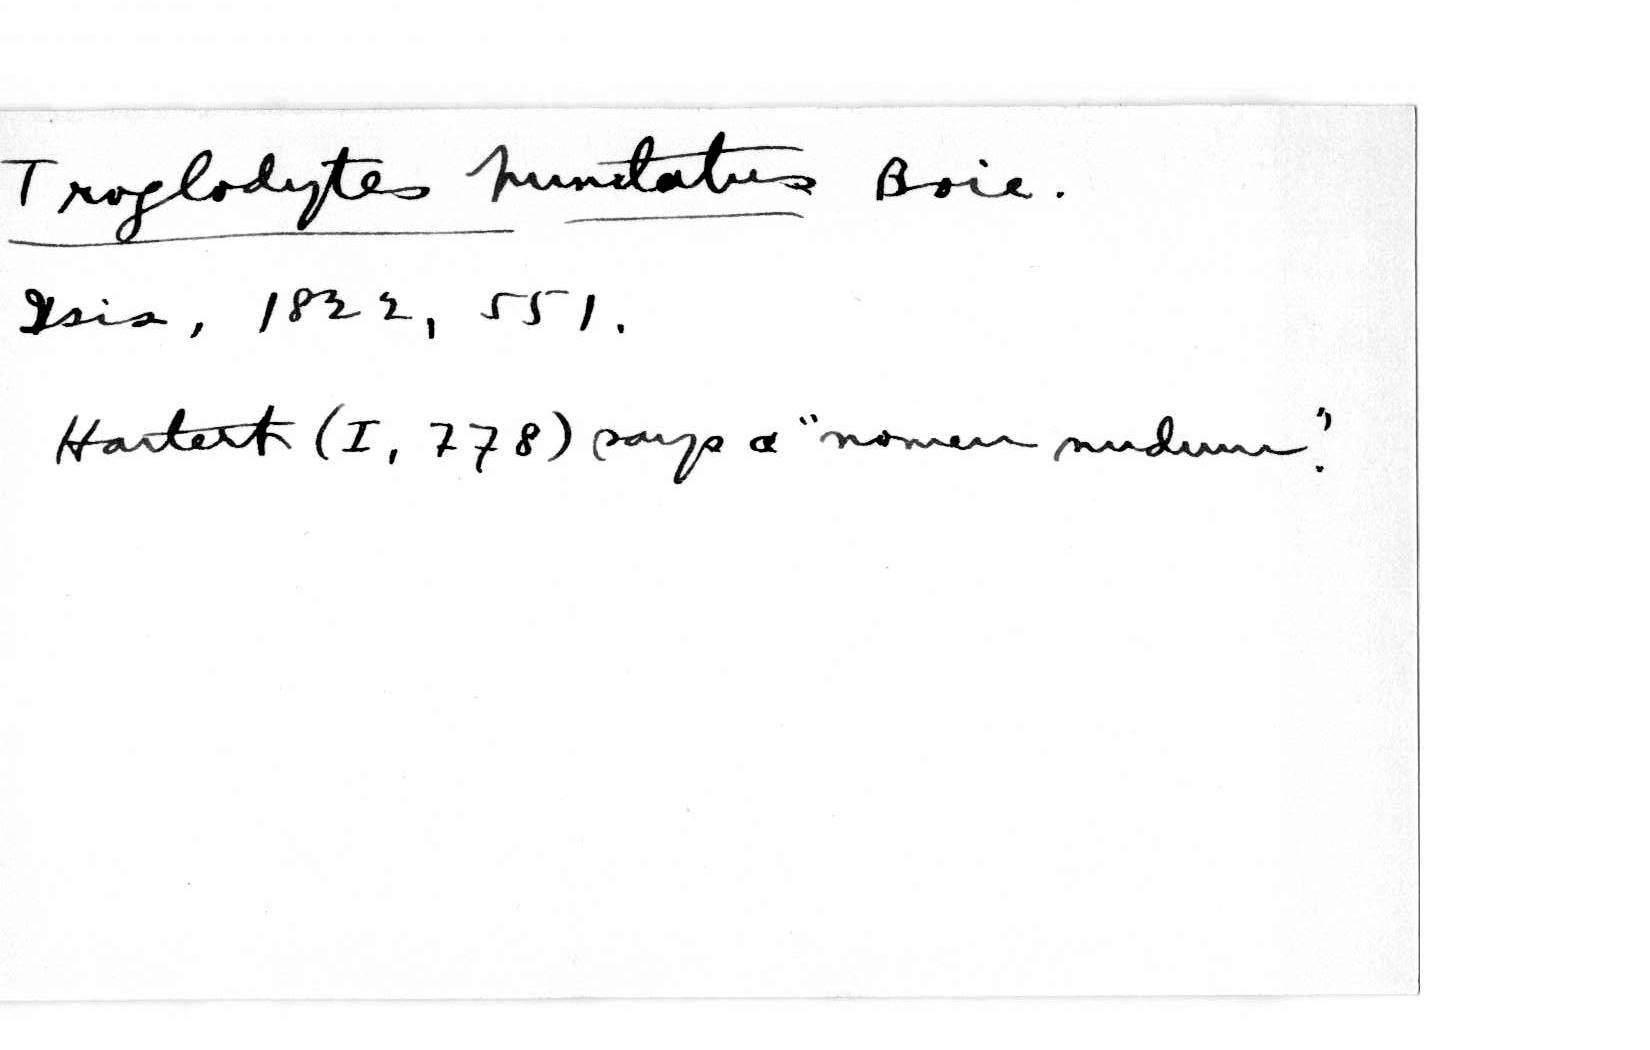 Troglodytes punctatus Boie.
Isis, 1822, 551.
Hartert (I, 778) says a "nomen nudum".